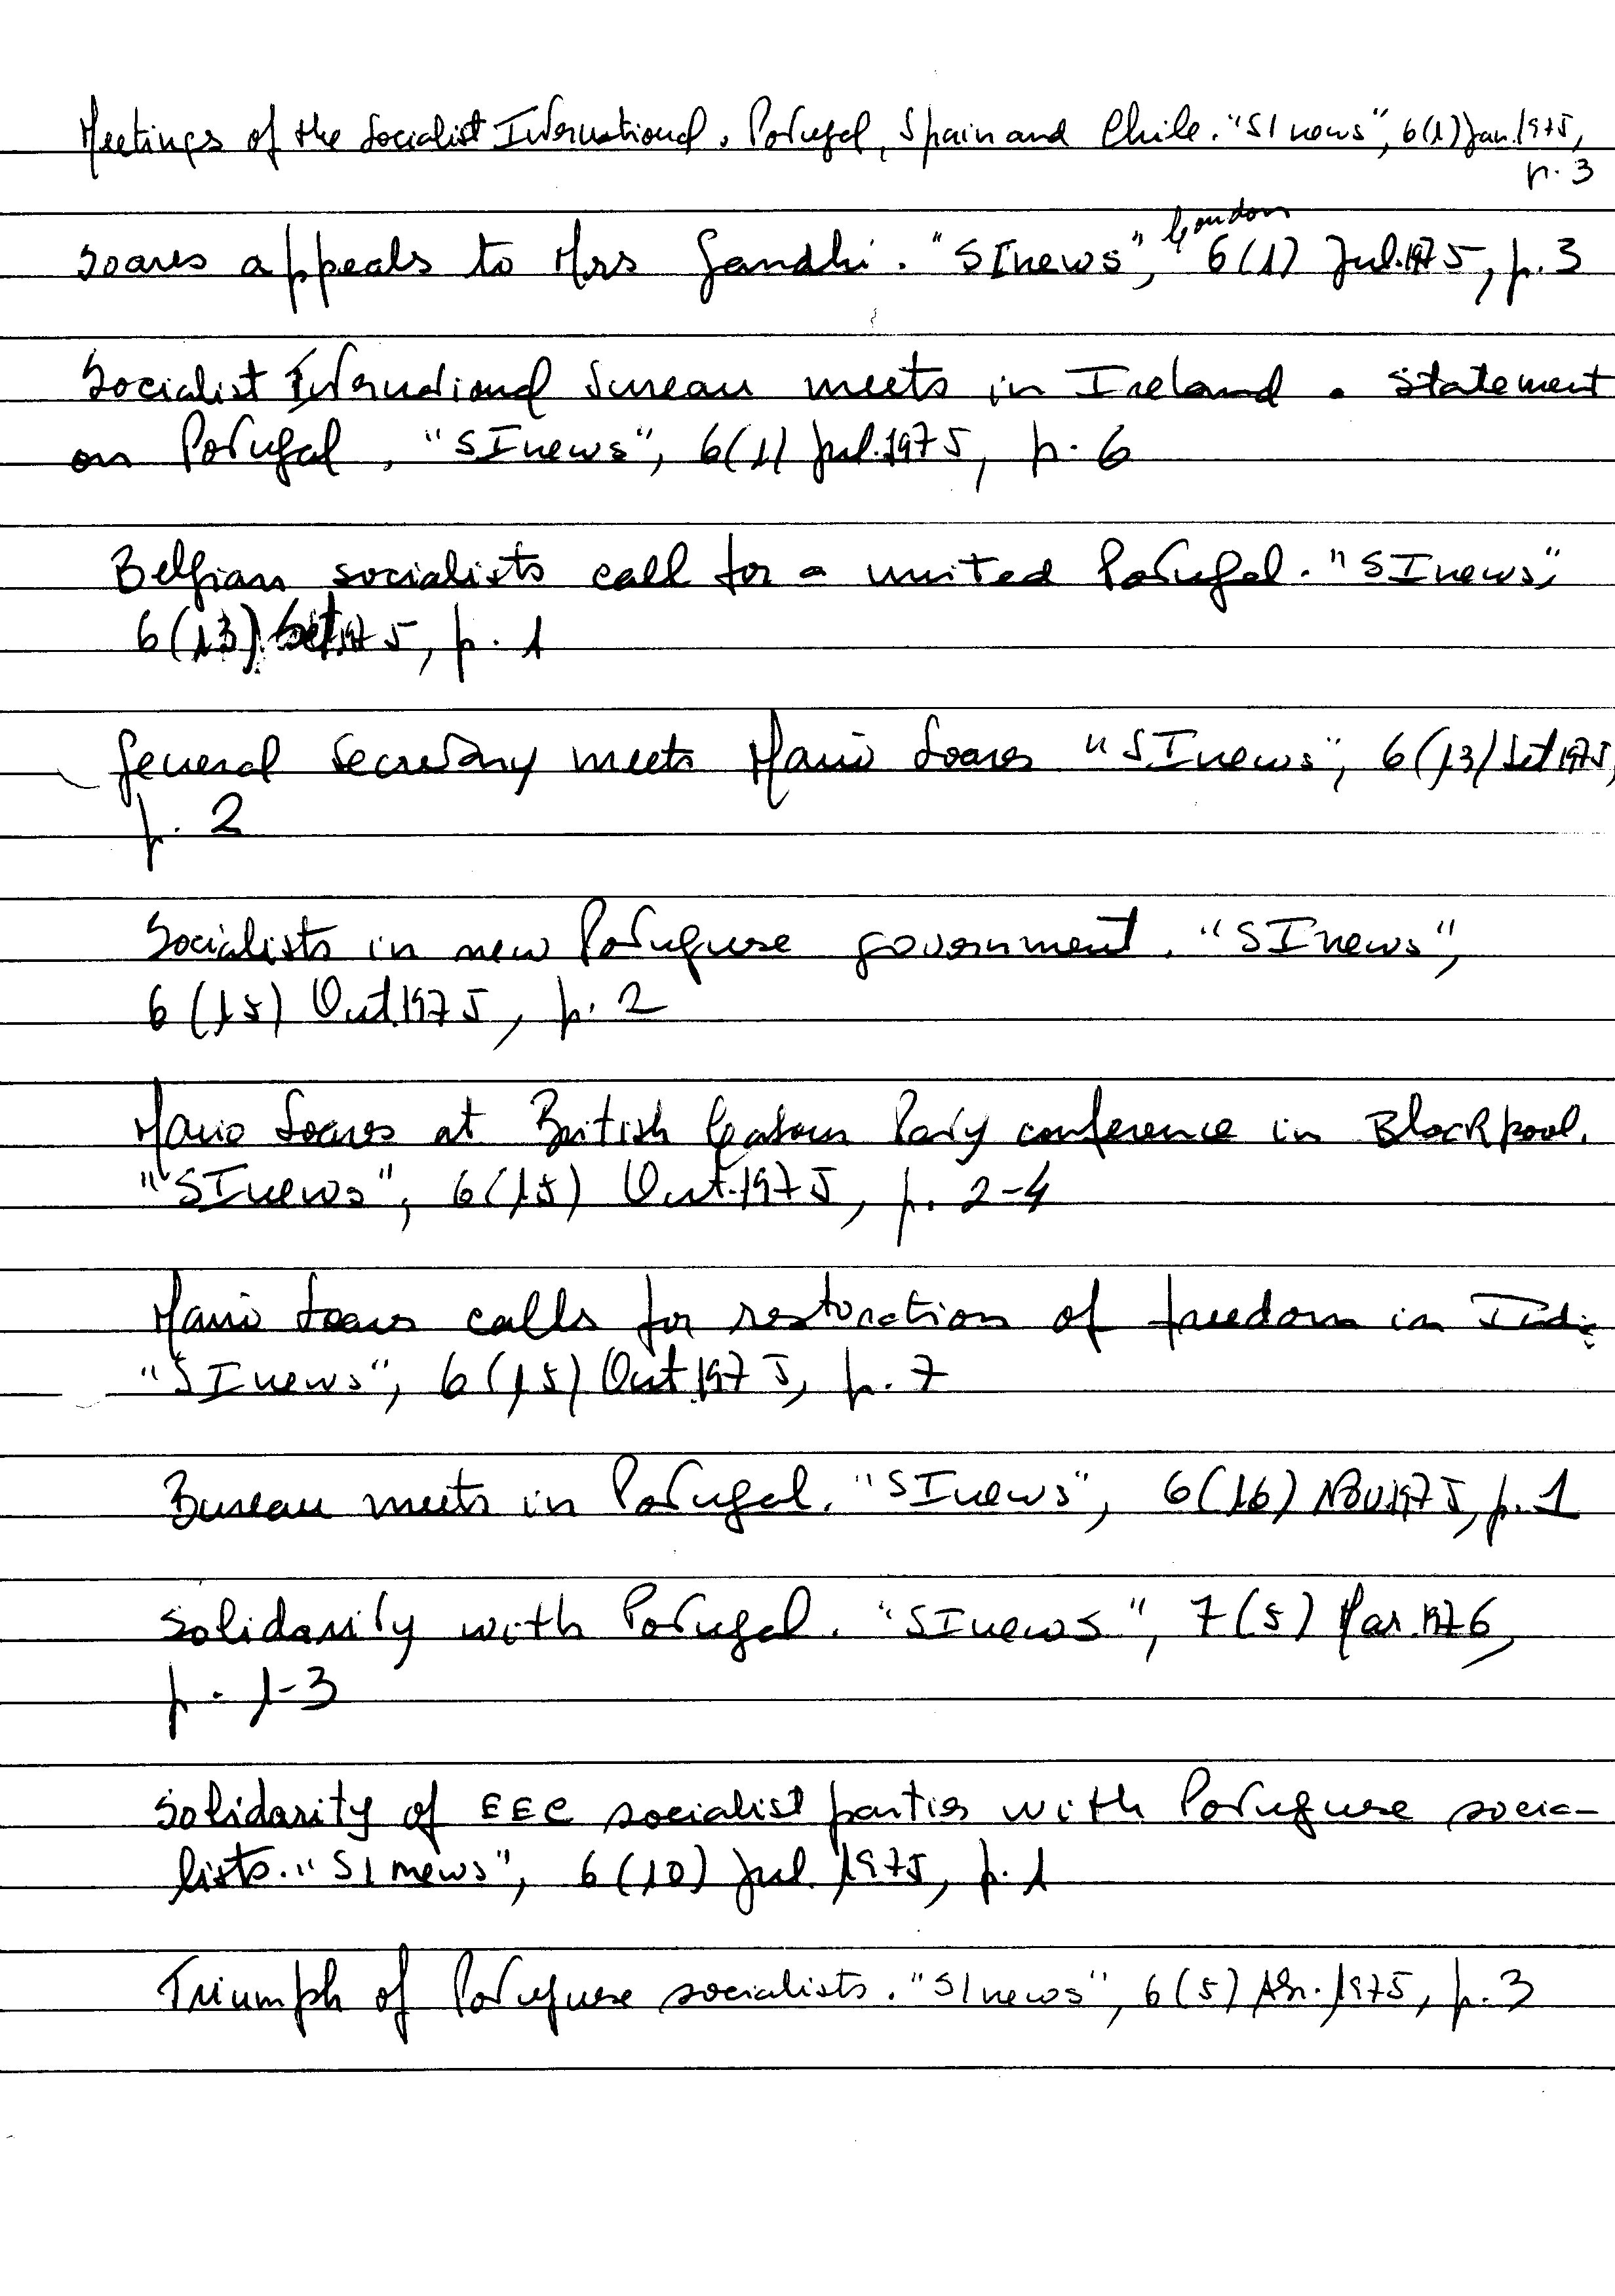 Meetings of the Socialist International. Portugal, Spain and Chile. "SI news", 6(1) Jan. 1975,
p. 3
London
Soares appeals to Mrs Gandhi. "SI news", 6(1) Jul. 1975, p. 3
Socialist International bureau meets in Ireland. Statement
on Portugal. "SI news", 6(1) Jul. 1975, p. 6
Belgian socialists call for a united Portugal. "SI news",
6(13) Set. 1975, p. 1
General Secretary meets Mario Soares "SI news", 6(13) Set 1975,
p. 2
Socialists in new Portuguese government. "SI news",
6(15) Out. 1975, p. 2
Mario Soares at British Labour Party conference in Blackpool.
"SI news", 6(15) Out. 1975, p. 2-4
Mario Soares calls for restoration of freedom in India
"SI news", 6(15) Out. 1975, p. 7
Bureau meets in Portugal. "SI news", 6(16) Nov. 1975, p. 1
Solidarity with Portugal. "SI news", 7(5) Mar. 1976,
p. 1-3
Solidarity of EEC socialist parties with Portuguese socia-
lists. "SI news", 6(10) Jul. 1975, p. 1
Triumph of Portuguese socialists. "SI news", 6(5) Abr. 1975, p. 3